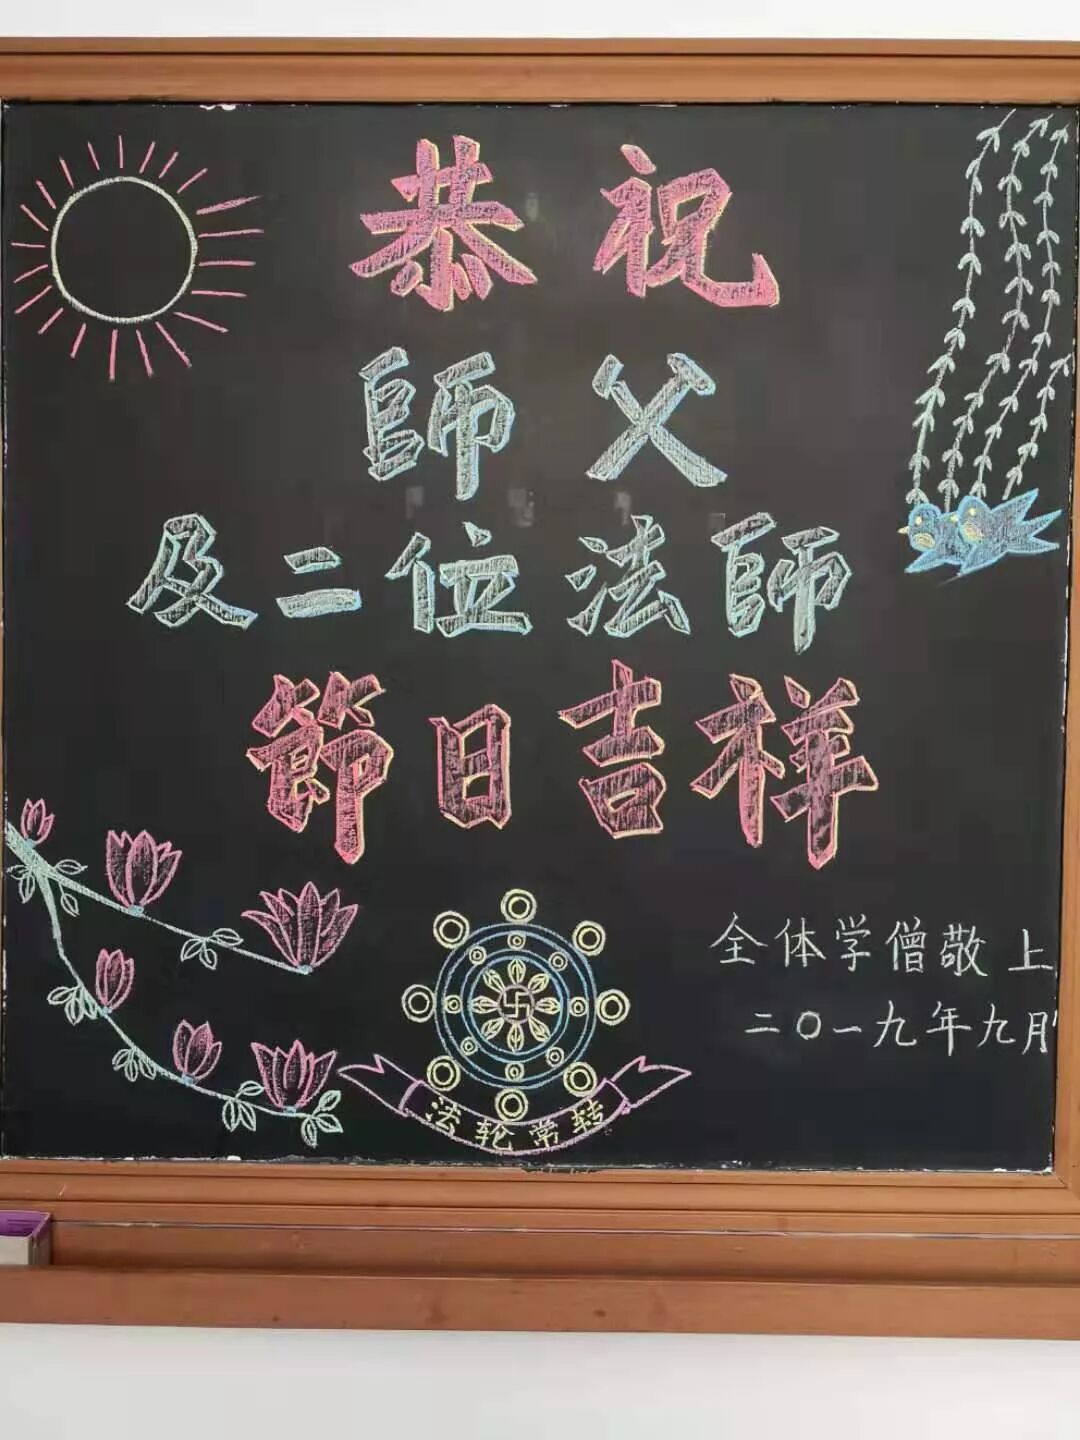 恭祝
師父
及二位法師
節日吉祥
全体学僧敬上
二〇一九年九月
法轮常转